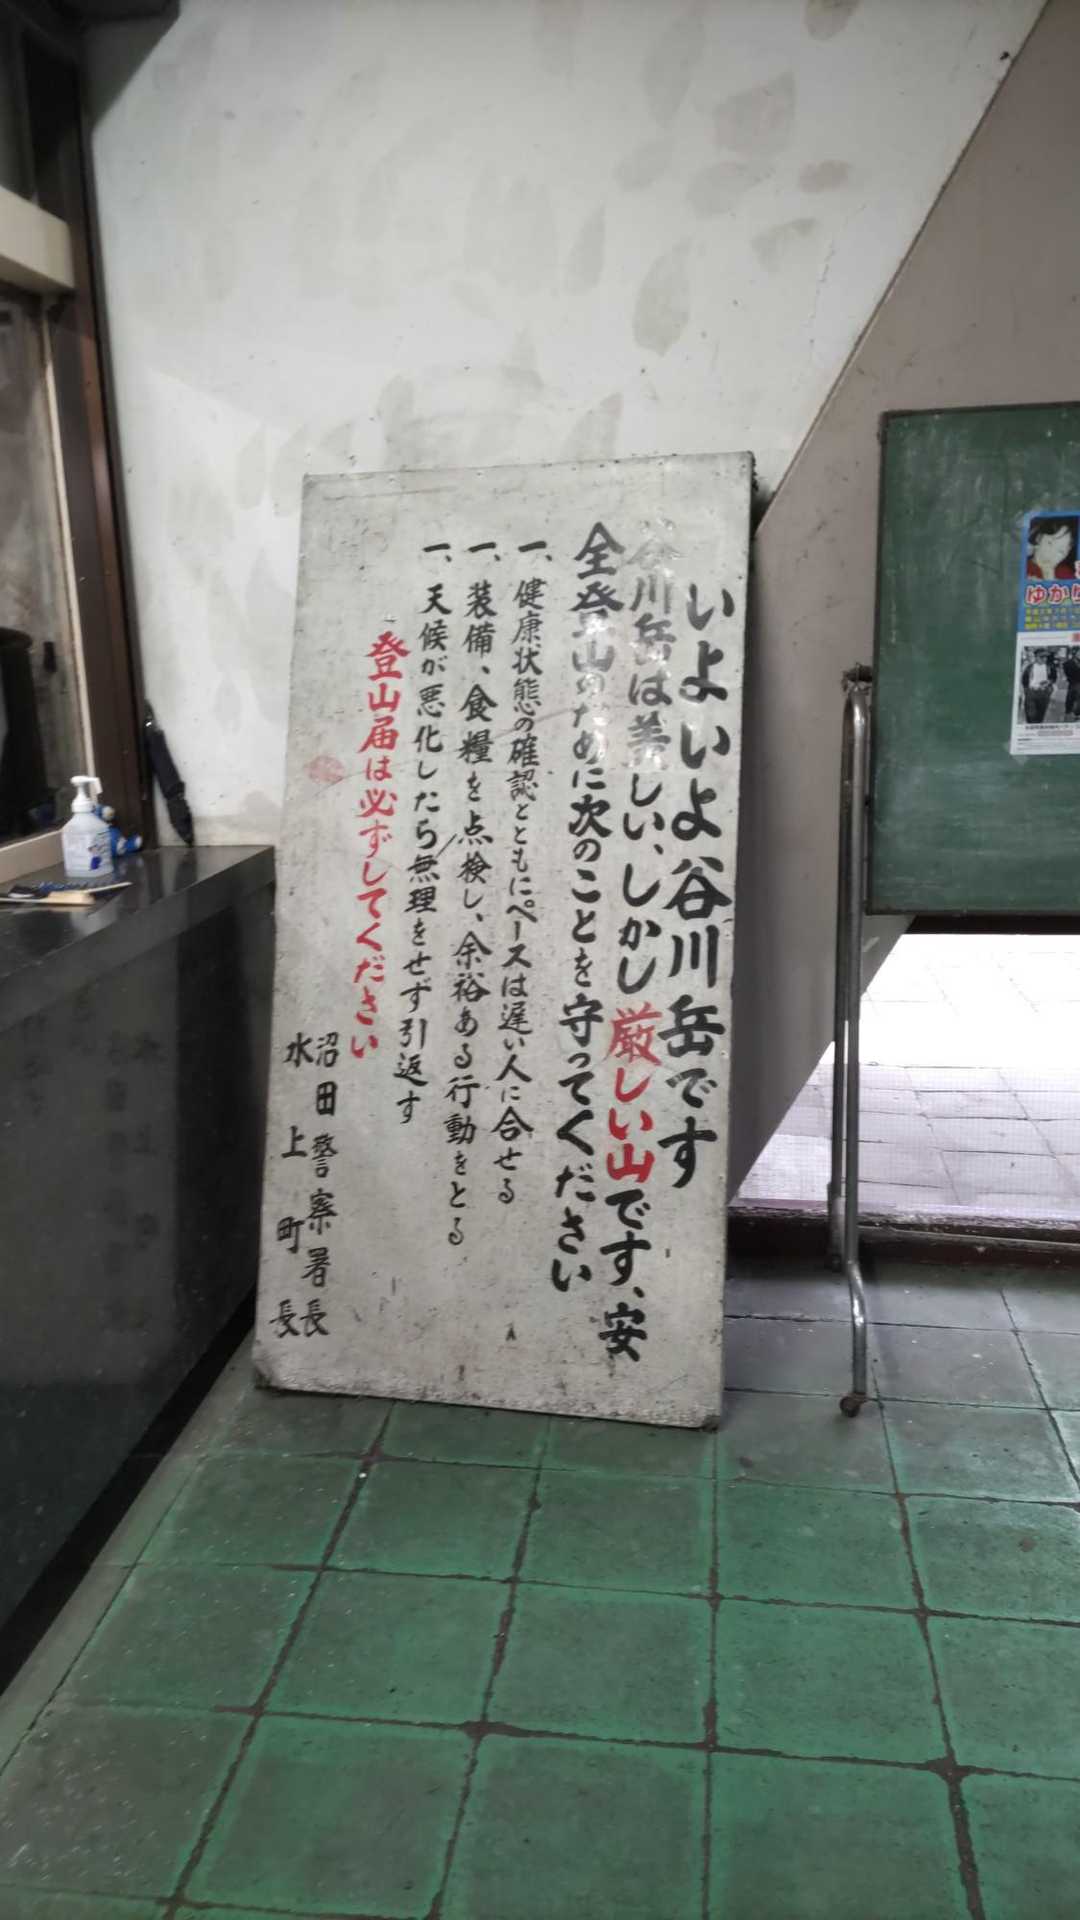 いよいよ谷川岳です
谷川岳は美しい、しかし厳しい山です、安
全登山のために次のことを守ってください
一、健康状態の確認とともにペースは遅い人に合せる
一、装備、食糧を点検し、余裕ある行動をとる
一、天候が悪化したら無理をせず引返す
登山届は必ずしてください
沼田警察署長
水上町長
ゆかり